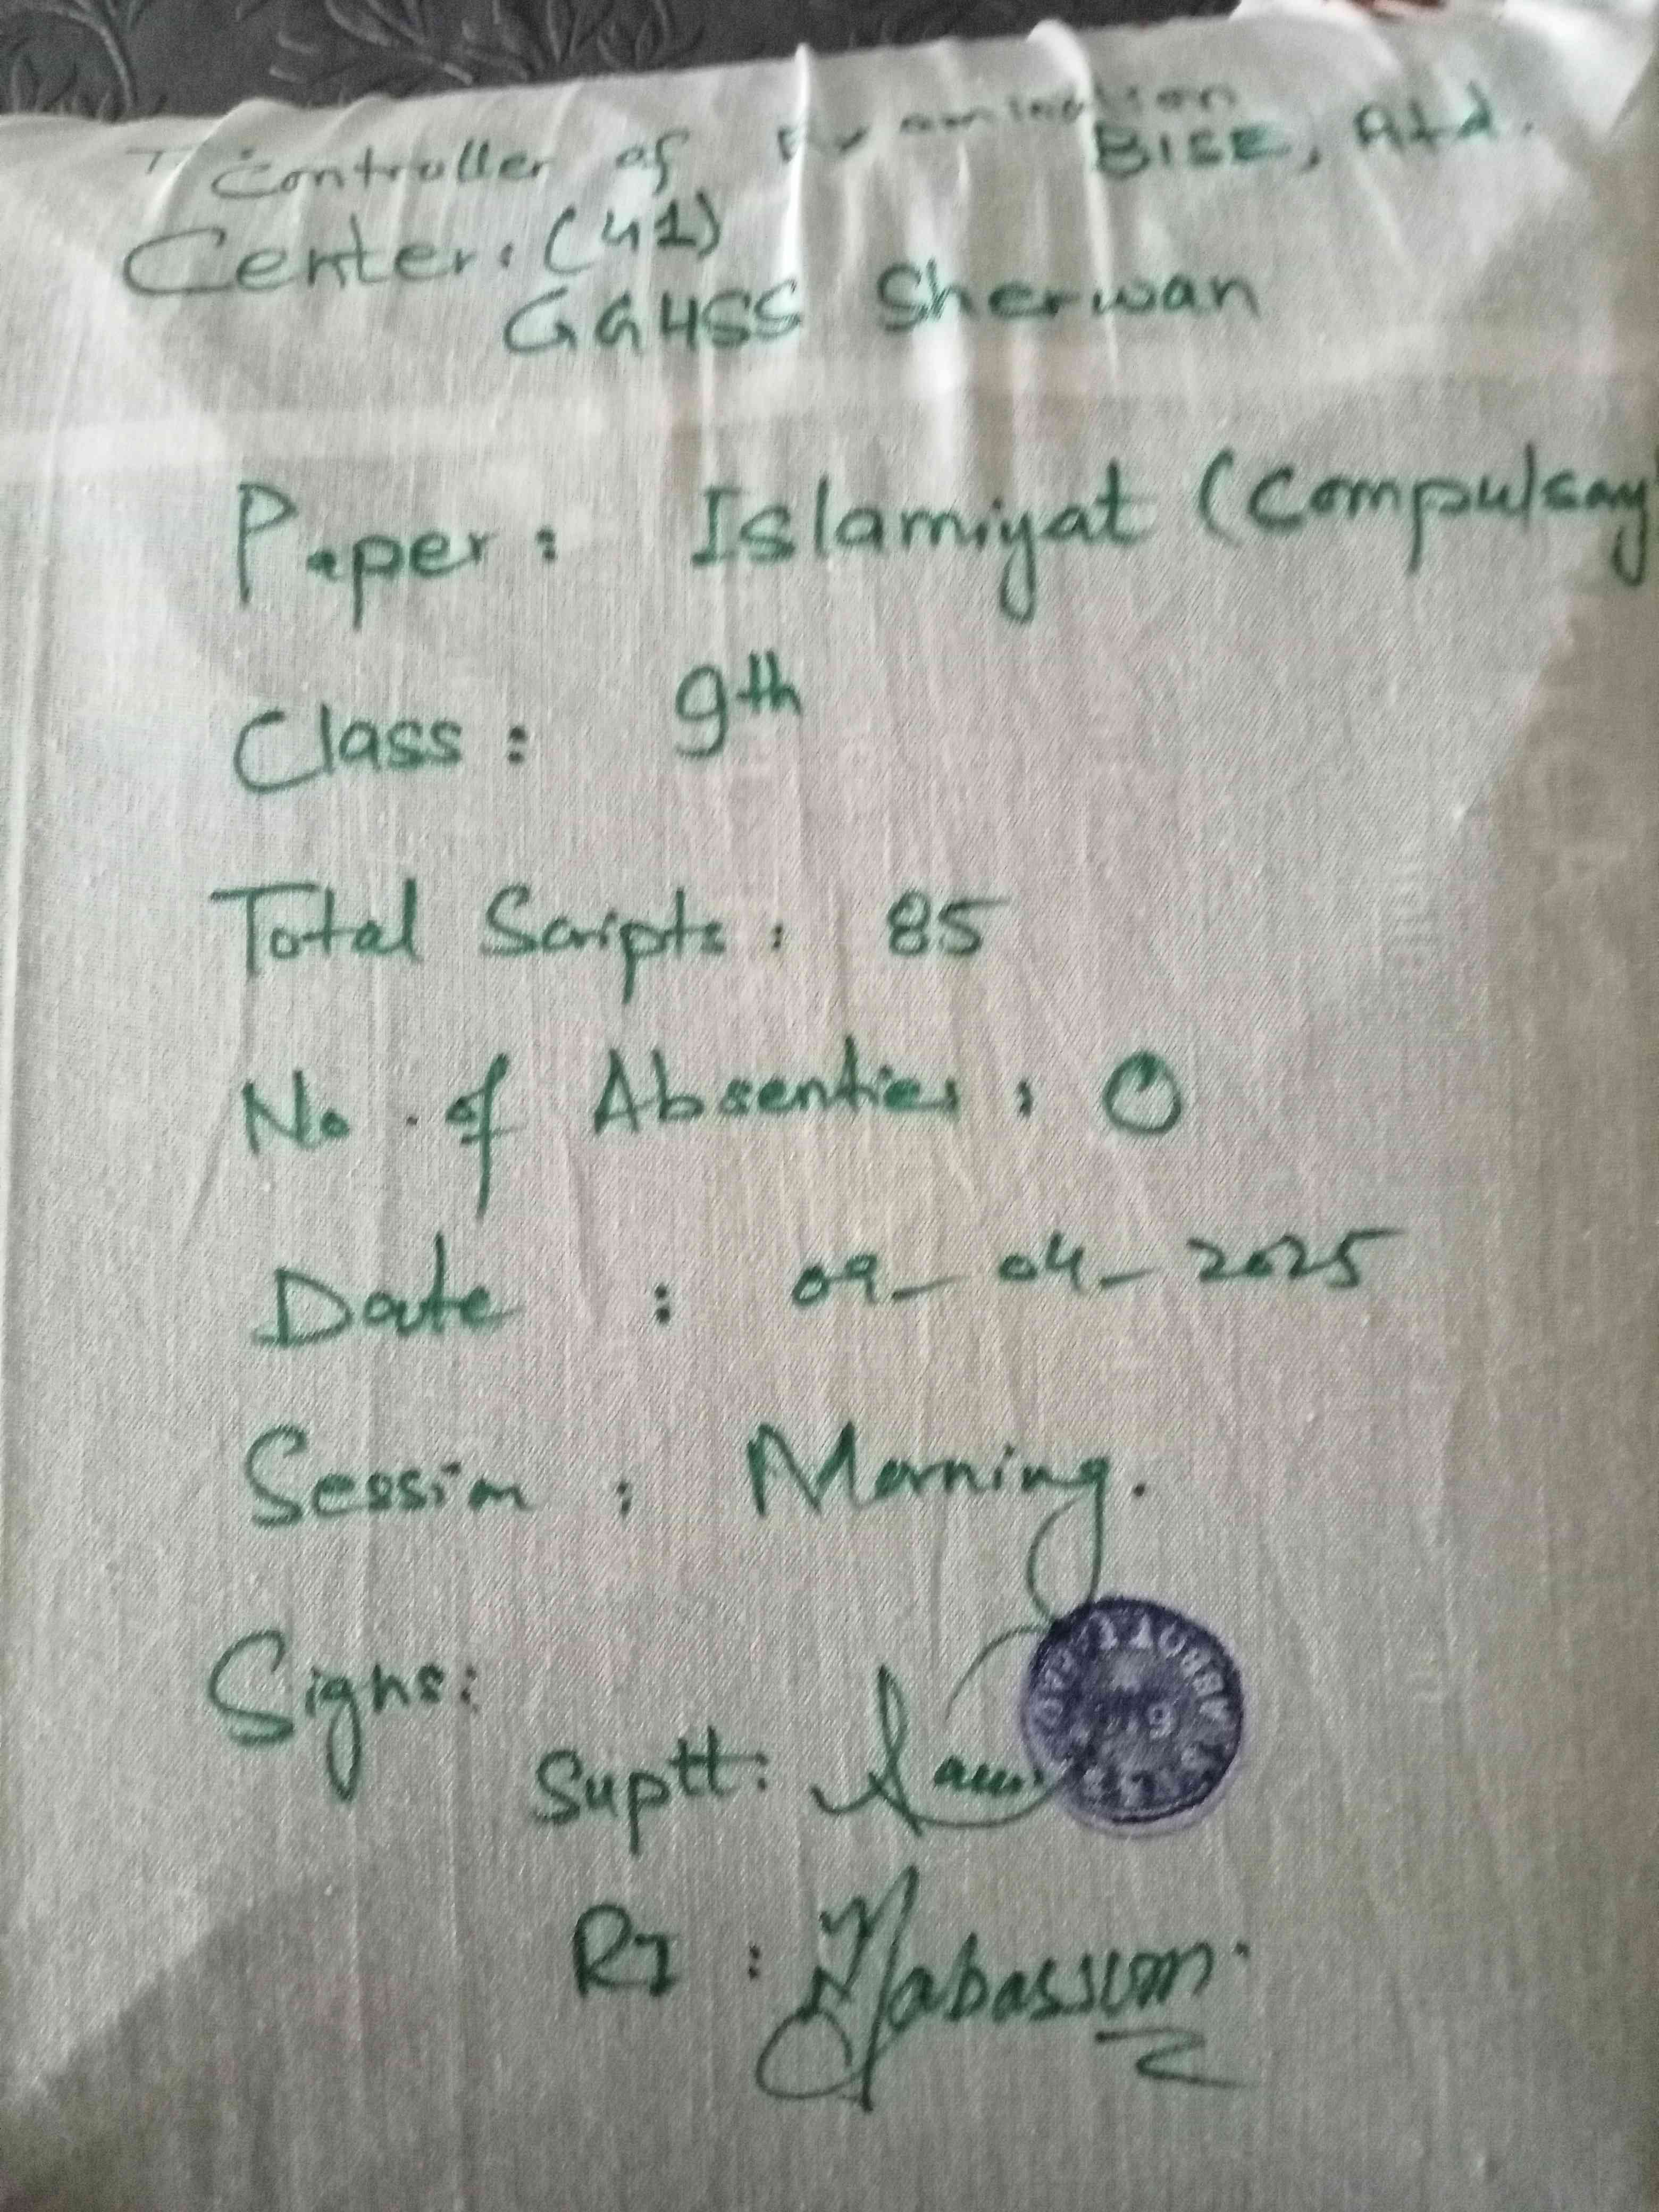 Controller of Examination
BISE, Atd.
Center: (41)
GGHSS Sherwan
Paper: Islamiyat (Compulsory)
Class: 9th
Total Scripts: 85
No. of Absenties: 0
Date: 09-04-2025
Session: Morning.
Signs:
Suptt:
RI: Tabassum